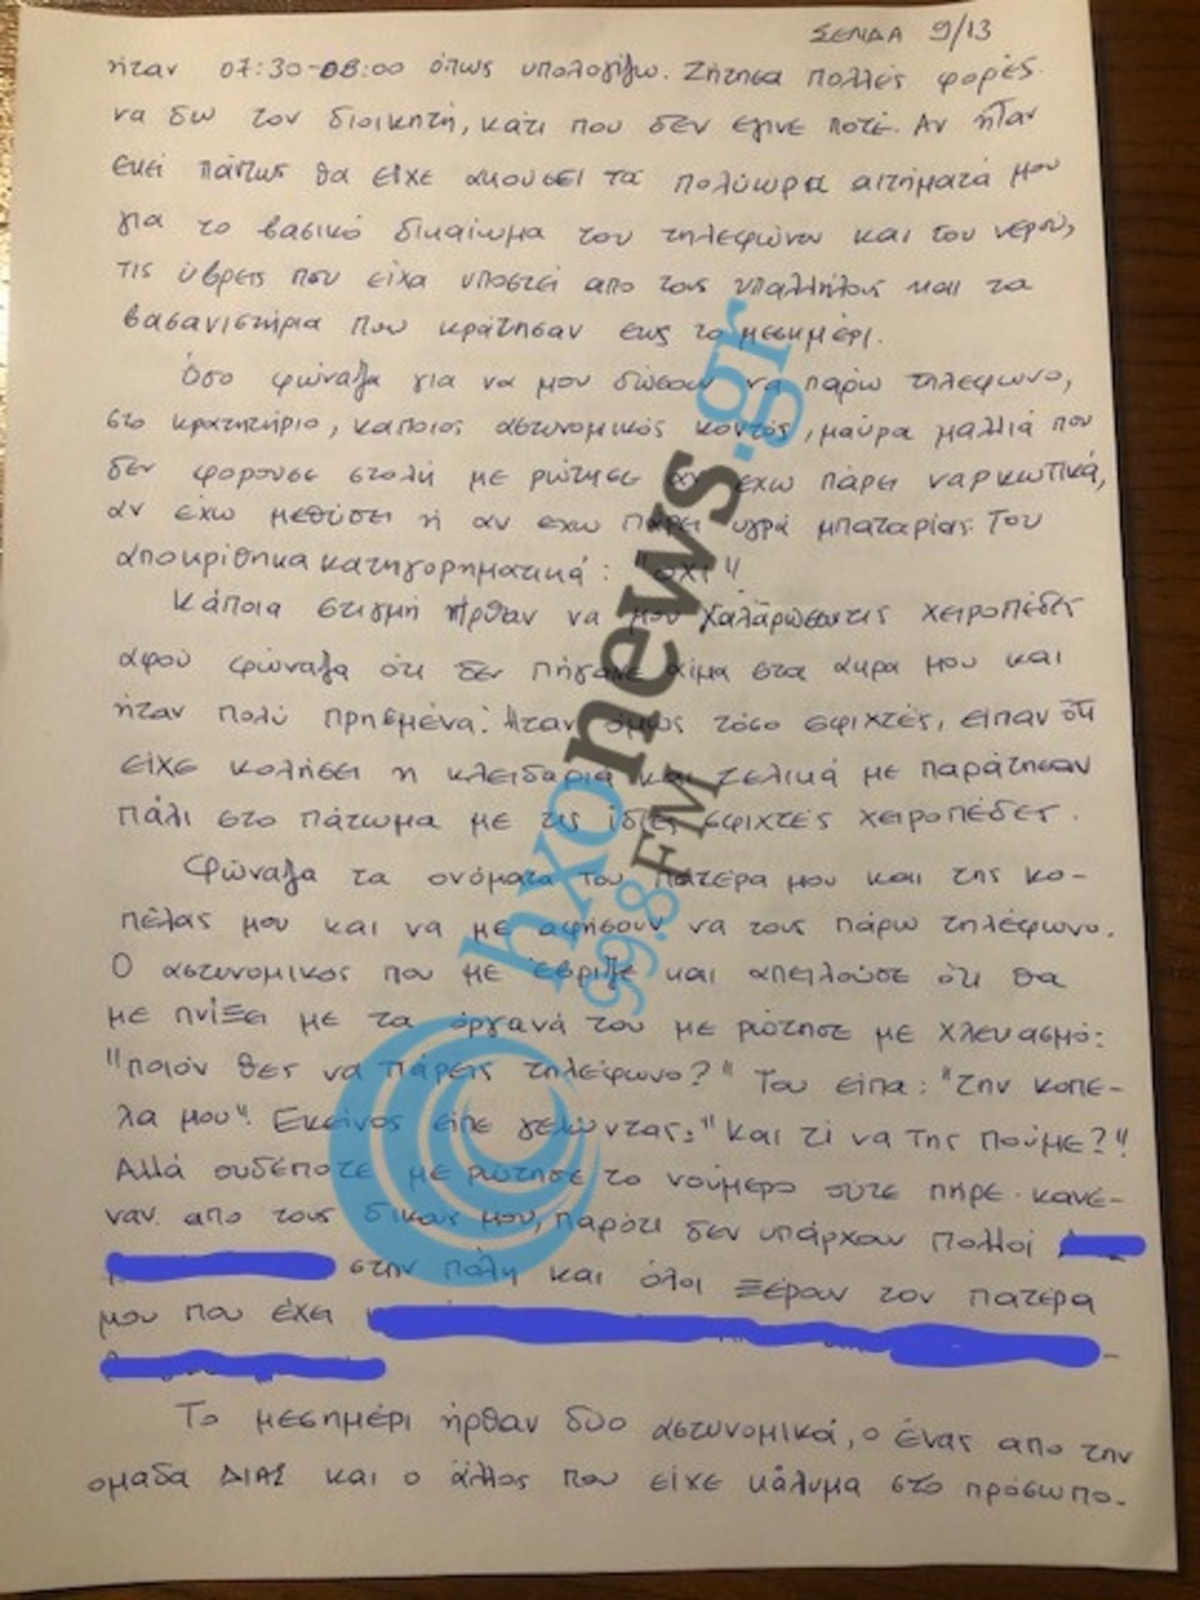 ΣΕΛΙΔΑ 9/13
ήταν 07:30-08:00 όπως υπολογίζω. Ζήτησα πολλές φορές
να δω τον διοικητή, κάτι που δεν έγινε ποτέ. Αν ήταν
εκεί πάντως θα είχε ακούσει τα πολύωρα αιτήματά μου
για το βασικό δικαίωμα του τηλεφώνου και του νερού,
τις ύβρεις που είχα υποστεί απο τους υπαλλήλους και τα
βασανιστήρια που κράτησαν εως το μεσημέρι.
Όσο φώναζα για να μου δώσουν να πάρω τηλεφωνο,
στο κρατητήριο, καποιος αστυνομικός κοντός, μαύρα μαλλιά που
δεν φορουσε στολή με ρώτησε αν εχω πάρει ναρκωτικά,
αν έχω μεθύσει ή αν εχω πάρει υγρά μπαταρίας. Του
αποκρίθηκα κατηγορηματικά: "οχι"
Κάποια στιγμή ήρθαν να μου χαλαρώσουν τις χειροπέδες
αφού φώναζα ότι δεν πήγαινε αίμα στα ακρα μου και
ήταν πολύ πρησμένα. Ήταν όμως τόσο σφιχτές, είπαν ότι
είχε κολήσει η κλειδαριά και τελικά με παράτησαν
πάλι στο πάτωμα με τις ίδιες σφιχτές χειροπέδες.
Φώναζα τα ονόματα του πατέρα μου και της κο-
πέλας μου και να με αφήσουν να τους πάρω τηλέφωνο.
Ο αστυνομικος που με έβριζε και απειλούσε ότι θα
με πνίξει με τα όργανά του με ρώτησε με χλευασμό:
"ποιόν θες να πάρεις τηλέφωνο?" Του είπα: "την κοπε-
λα μου". Εκείνος είπε γελώντας: "Και τί να της πούμε?"
Αλλά ουδέποτε με ρώτησε το νούμερο ούτε πήρε κανέ-
ναν απο τους δικούς μου, παρότι δεν υπάρχουν πολλοί
στην πόλη και όλοι ξέρουν τον πατέρα
μου που έχει
Το μεσημέρι ήρθαν δύο αστυνομικοί, ο ένας απο την
ομαδα ΔΙΑΣ και ο άλλος που είχε κάλυμα στο πρόσωπο.
hxonews.gr
99.8 FM